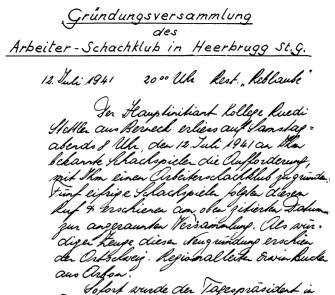 Gründungsversammlung
des
Arbeiter-Schachklub in Heerbrugg St.G.
12. Juli 1941 20⁰⁰ Uhr Rest. „Reblaube"
Der Hauptinitiant Kollege Ruedi
Stettler aus Berneck erliess auf Samstag-
abends 8 Uhr, den 12. Juli 1941 an Ihm
bekannte Schachspieler die Aufforderung,
mit Ihm einen Arbeiterschachklub zu gründen.
Fünf eifrige Schachspieler folgten diesem
Ruf & erschienen am oben zitierten Datum
zur anberaumten Versammlung. Als wür-
diger Zeuge dieser Neugründung erschien
der Ostschweiz. Regionalleiter Erwin
aus Arbon.
Sofort wurde der Tagespräsident in